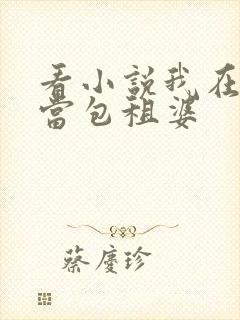 看小説我在
當包租婆
蔡慶珍